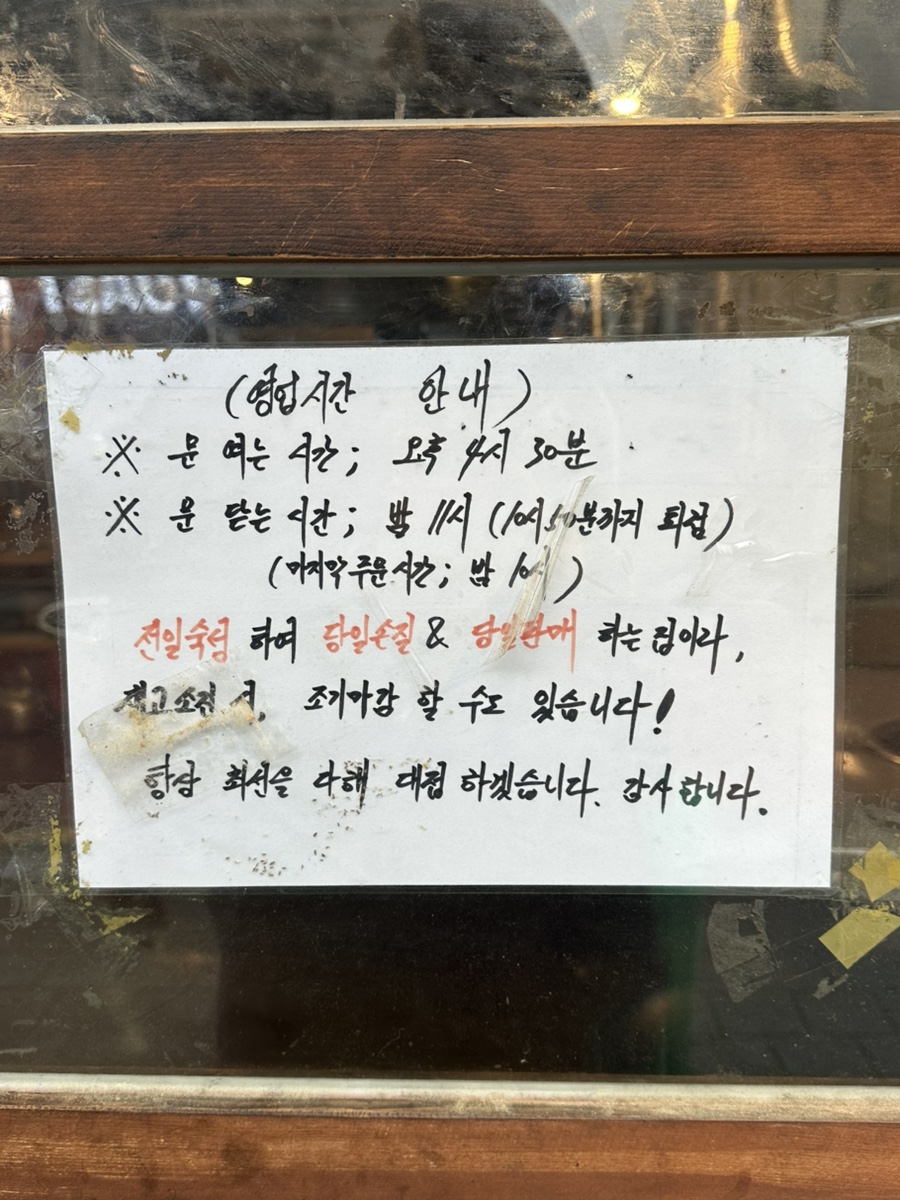 (영업시간 안내)
※ 문 여는 시간; 오후 4시 30분
※ 문 닫는 시간; 밤 11시 (10시 50분까지 퇴점)
(마지막 주문시간; 밤 10시)
전일숙성 하여 당일손질 & 당일판매 하는 집이라,
재고소진 시, 조기마감 할 수도 있습니다!
항상 최선을 다해 대접 하겠습니다. 감사합니다.